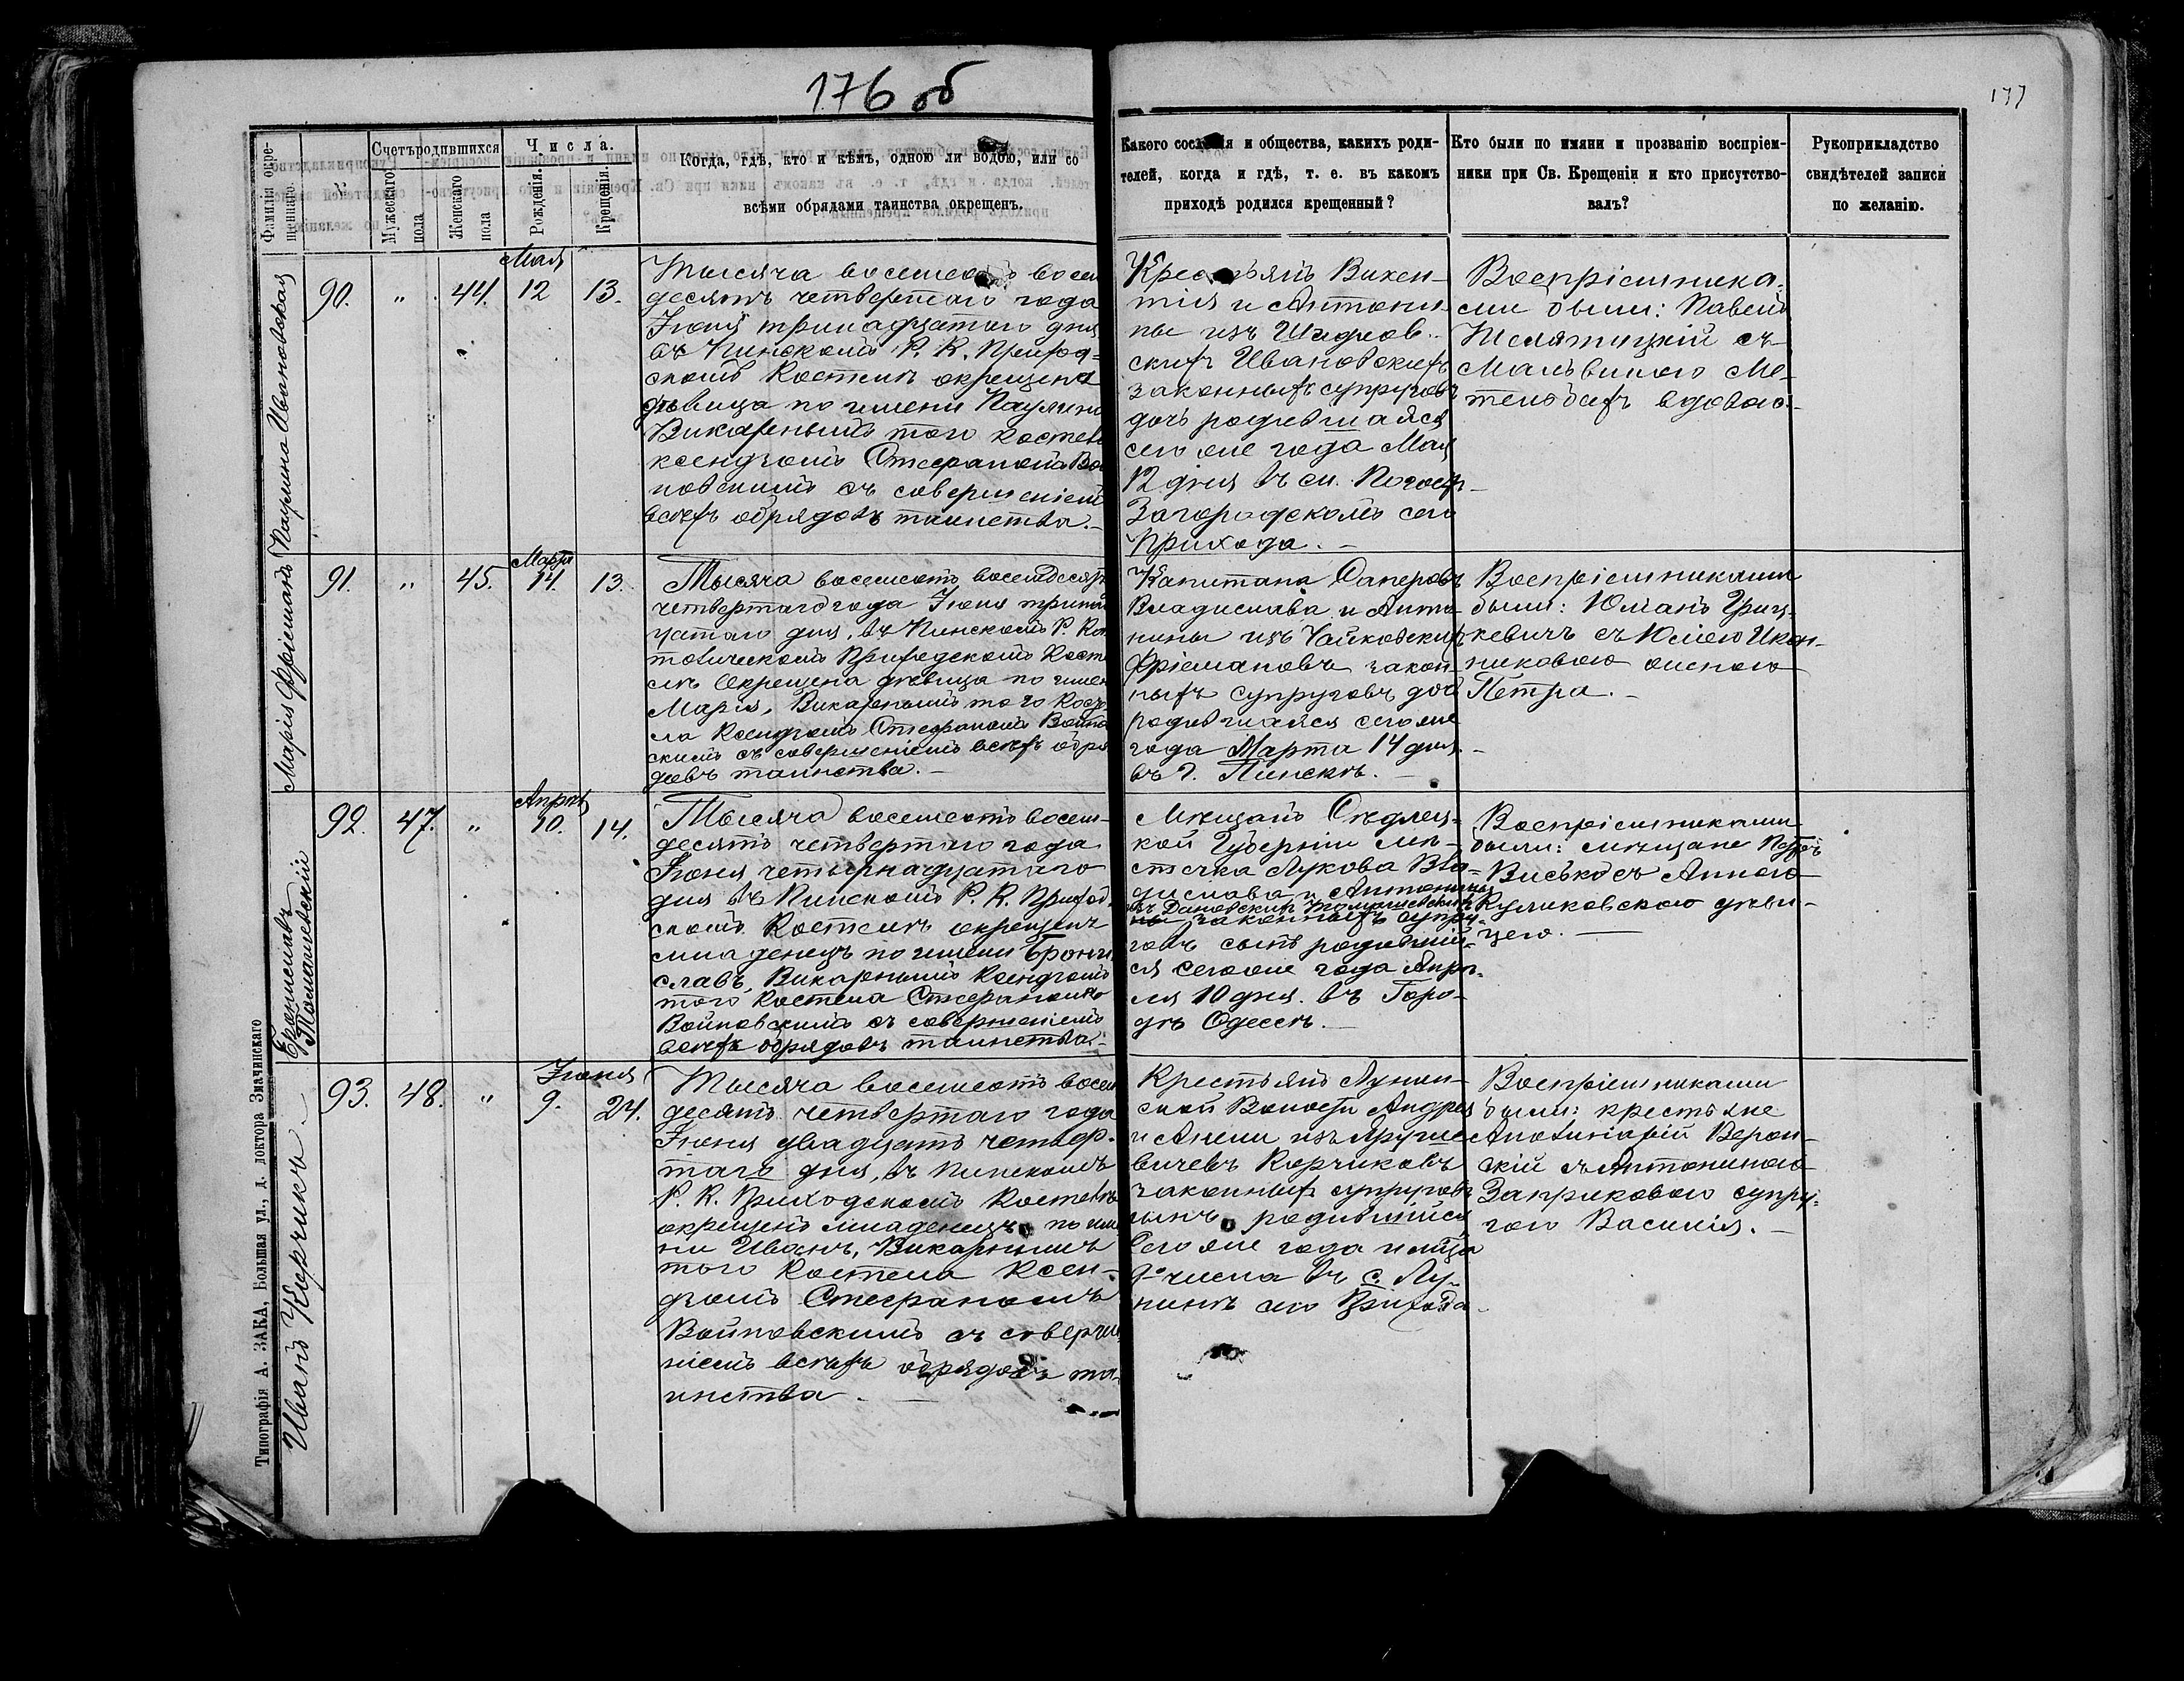 176 об
177
Фамилія окре-
щеннаго.
№
Счетъ родившихся
Мужескаго
пола
Женскаго
пола
Числа.
Рожденія.
Крещенія.
Когда, гдѣ, кто и кѣмъ, одною ли водою, или со
всѣми обрядами таинства окрещенъ.
Какого состоянія и общества, какихъ роди-
телей, когда и гдѣ, т. е. въ какомъ
приходѣ родился крещенный?
Кто были по имяни и прозванію воспріем-
ники при Св. Крещеніи и кто присутство-
валъ?
Рукоприкладство
свидѣтелей записи
по желанію.
Паулина Ивановская
90.
"
44.
Мая
12
13.
Тысяча восемьсотъ восем
десятъ четвертаго года
Іюня тринадцатаго дня
въ Пинскомъ Р. К. Приход-
скомъ Костелѣ окрещена
дѣвица по имени Паулина
Викарнымъ того костела
ксендзомъ Стефаномъ Вой
новскимъ съ совершеніемъ
всѣхъ обрядовъ таинства.-
Крестьянъ Викен-
тія и Антони-
ны изъ
скихъ Ивановскихъ
законныхъ супруговъ
дочь родившаяся
сего же года Мая
12 дня въ им. Погост-
Загородскомъ сего
Прихода.-
Воспріемника-
ми были: Павелъ
съ
Мальвиною Ме-
вдовою.-
Марія Фріеманъ
91.
"
45.
Марта
14.
13.
Тысяча восемьсотъ восемдесятъ
четвертаго года Іюня тринад
цатаго дня, въ Пинскомъ Р. Ка
толическомъ Приходскомъ Косте
лѣ окрещена дѣвица по имени
Марія, Викарнымъ того Косте
ла Ксендзомъ Стефаномъ Война
скимъ съ совершеніемъ всѣхъ обря
довъ таинства.-
Капитана Саперовъ
Владислава и Анто-
нины изъ Чайковскихъ
Фріемановъ закон-
ныхъ супруговъ дочь
родившаяся сего же
года Марта 14 дня.-
въ г. Пинскѣ.-
Воспріемниками
были: Юліанъ Гриц-
кевичъ съ Юліею Икон-
никовою женою
Петра.-
Брониславъ
Томашевскій
92.
47.
"
Апрѣль
10.
14.
Тысяча восемьсотъ восем-
десятъ четвертаго года
Іюня четырнадцатаго
дня въ Пинскомъ Р. К. Приход-
скомъ Костелѣ окрещенъ
младенецъ по имени Брони
славъ, Викарнымъ Ксендзомъ
того Костела Стефаномъ
Войновскимъ съ совершеніемъ
всѣхъ обрядовъ таинства.-
Мѣщанъ Сѣдлец-
кой Губерніи мѣ-
стечка Лукова Вла-
дислава и Антонины
изъ Дановскихъ Томашевскихъ
законныхъ супру-
говъ сынъ родивший-
ся сего же года Апрѣ-
ля 10 дня. въ Горо-
дѣ Одессѣ.-
Воспріемниками
были: мѣщане Петръ
Висько съ Анною
Куликовскою дѣви-
цею.-
Иванъ Корчикъ.-
93.
48.
"
Іюня
9.
24.
Тысяча восемьсотъ восем
десятъ четвертаго года
Іюня двадцать четвер-
таго дня, въ Пинскомъ
Р. К. Приходскомъ Костелѣ
окрещенъ младенецъ по име
ни Иванъ, Викарнымъ
того Костела Ксен-
дзомъ Стефаномъ
Войновскимъ съ соверше
ніемъ всѣхъ обрядовъ та-
инства.-
Крестьянъ Лунин-
ской Волости Андрея
и Анны изъ Яруше
вичевъ Корчиковъ
законныхъ супруговъ
сынъ родившийся
сего же года и мѣсяца
9 числа въ с. Лу-
нинѣ сего Прихода-
Воспріемниками
были: крестьяне
Аполинарій Верон-
скій съ Антониною
Запрековою супру-
гою Василія.-
Типографія А. ЗАКА, Большая ул., д. доктора Змачинскаго